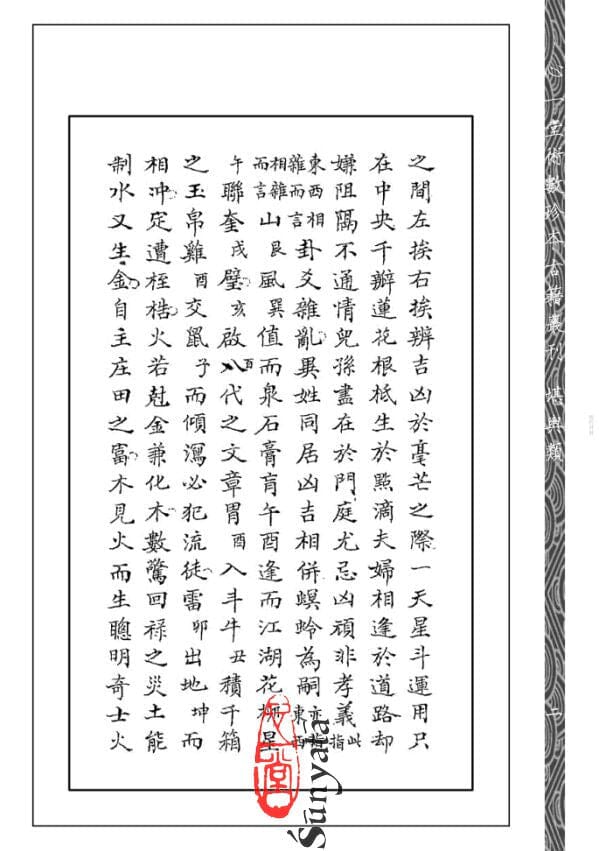 之間左挨右挨辨吉凶於毫芒之際一天星斗運用只
在中央千辦蓮花根柢生於點滴夫婦相逢於道路却
嫌阻隔不通情兒孫盡在於門庭尤忌凶頑非孝義此指
東西相雜而言卦爻雜亂異姓同居凶吉相併螟蛉為嗣亦指東西
相雜而言山艮風巽值而泉石膏肓午酉逢而江湖花柳星
午聯奎戌壁亥啟八酉代之文章胃酉入斗牛丑積千箱
之玉帛雞酉交鼠子而傾瀉必犯流徒雷卯出地坤而
相冲定遭桎梏火若尅金兼化木數驚回祿之災土能
制水又生金自主庄田之富木見火而生聰明奇士火
心一堂術數珍本古籍叢刊 堪輿類 二
心一堂
Śūnyatā